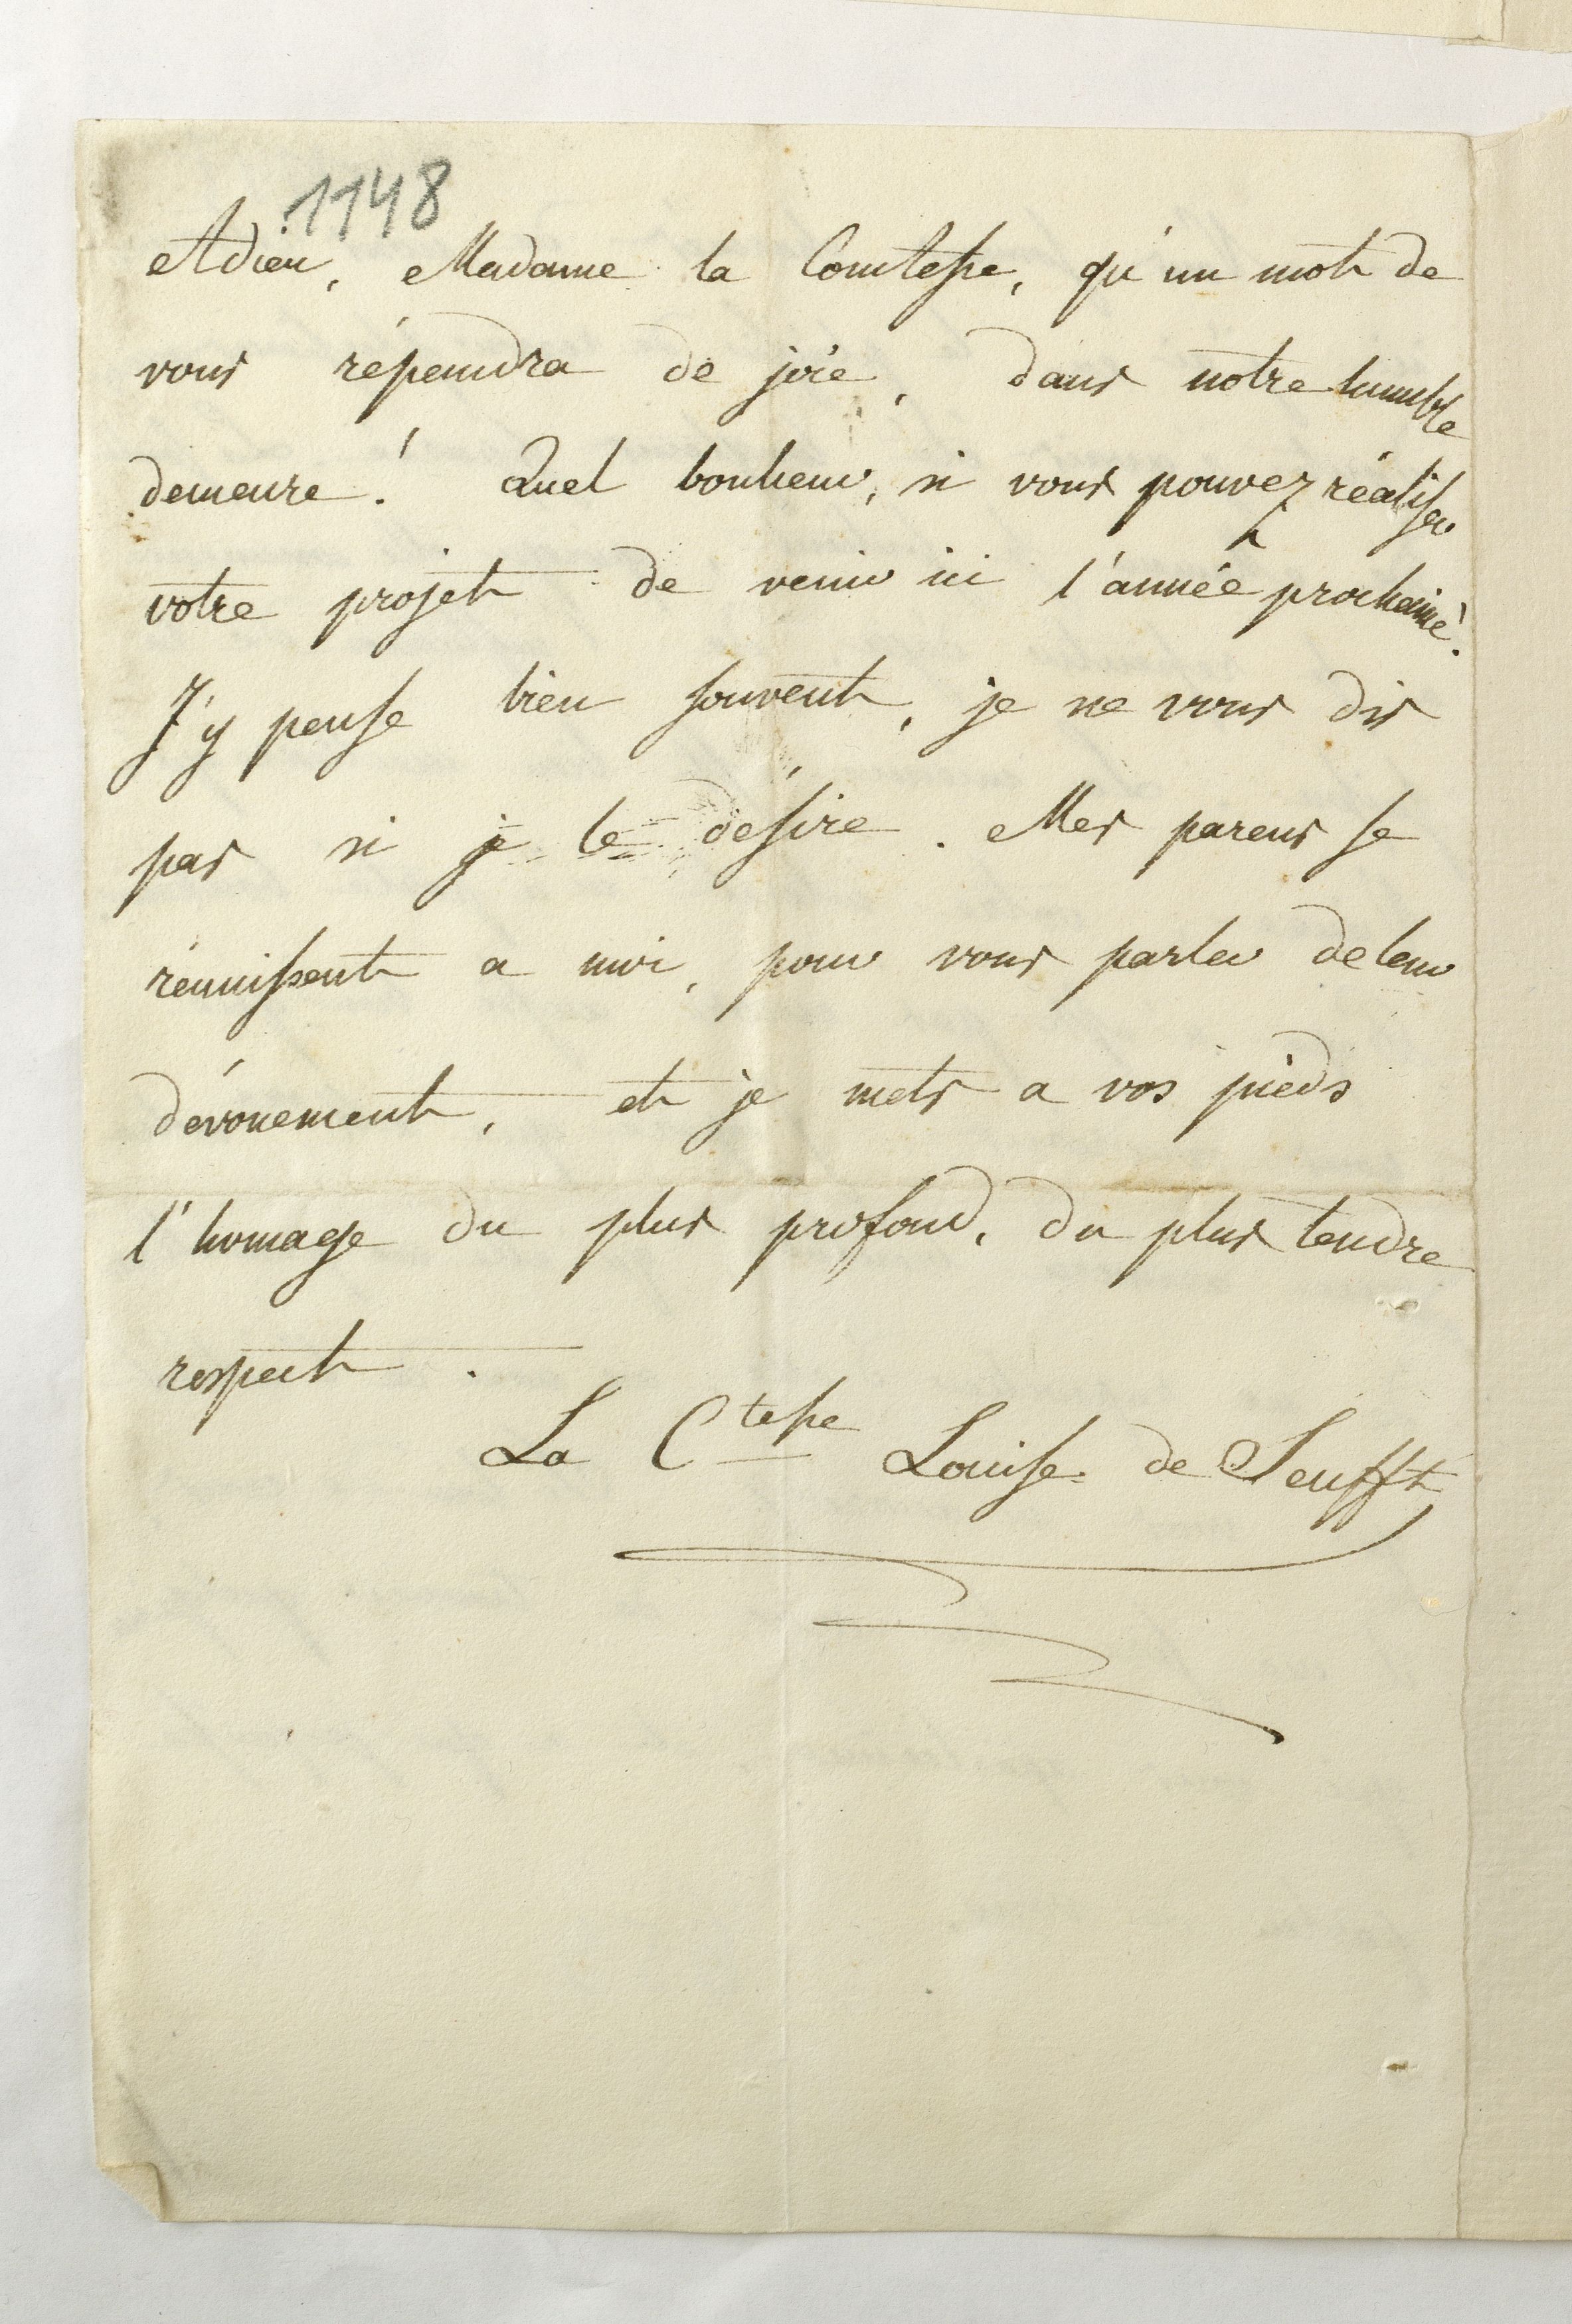 1148
Adieu, Madame la Comtesse, qu'un mot de
vous répendra de joie, dans notre humble
demeure! Quel bonheur, si vous pouvez réaliser
votre projet de venir ici l'année prochaine.
J'y pense bien souvent, je ne vous dis
pas si je le désire. Mes parens se
réunissent a moi, pour vous parler de leur
dévouement, et je mets a vos pieds
l'homage du plus profond, du plus tendre
respect.
La Ctesse Louise de Senfft